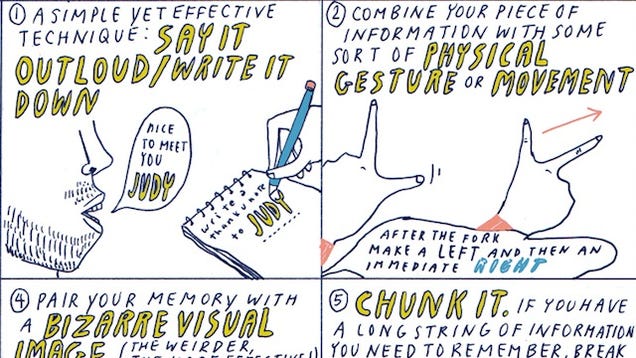 ① A SIMPLE YET EFFECTIVE
TECHNIQUE: SAY IT
OUTLOUD/WRITE IT
DOWN
NICE
TO MEET
YOU
JUDY
write a
thank u note
to JUDY
② COMBINE YOUR PIECE OF
INFORMATION WITH SOME
SORT OF PHYSICAL
GESTURE OR MOVEMENT
AFTER THE FORK
MAKE A LEFT AND THEN AN
IMMEDIATE RIGHT
④ PAIR YOUR MEMORY WITH
A BIZARRE VISUAL
IMAGE (THE WEIRDER,
THE MORE EFFECTIVE!)
⑤ CHUNK IT. IF YOU HAVE
A LONG STRING OF INFORMATION
YOU NEED TO REMEMBER, BREAK